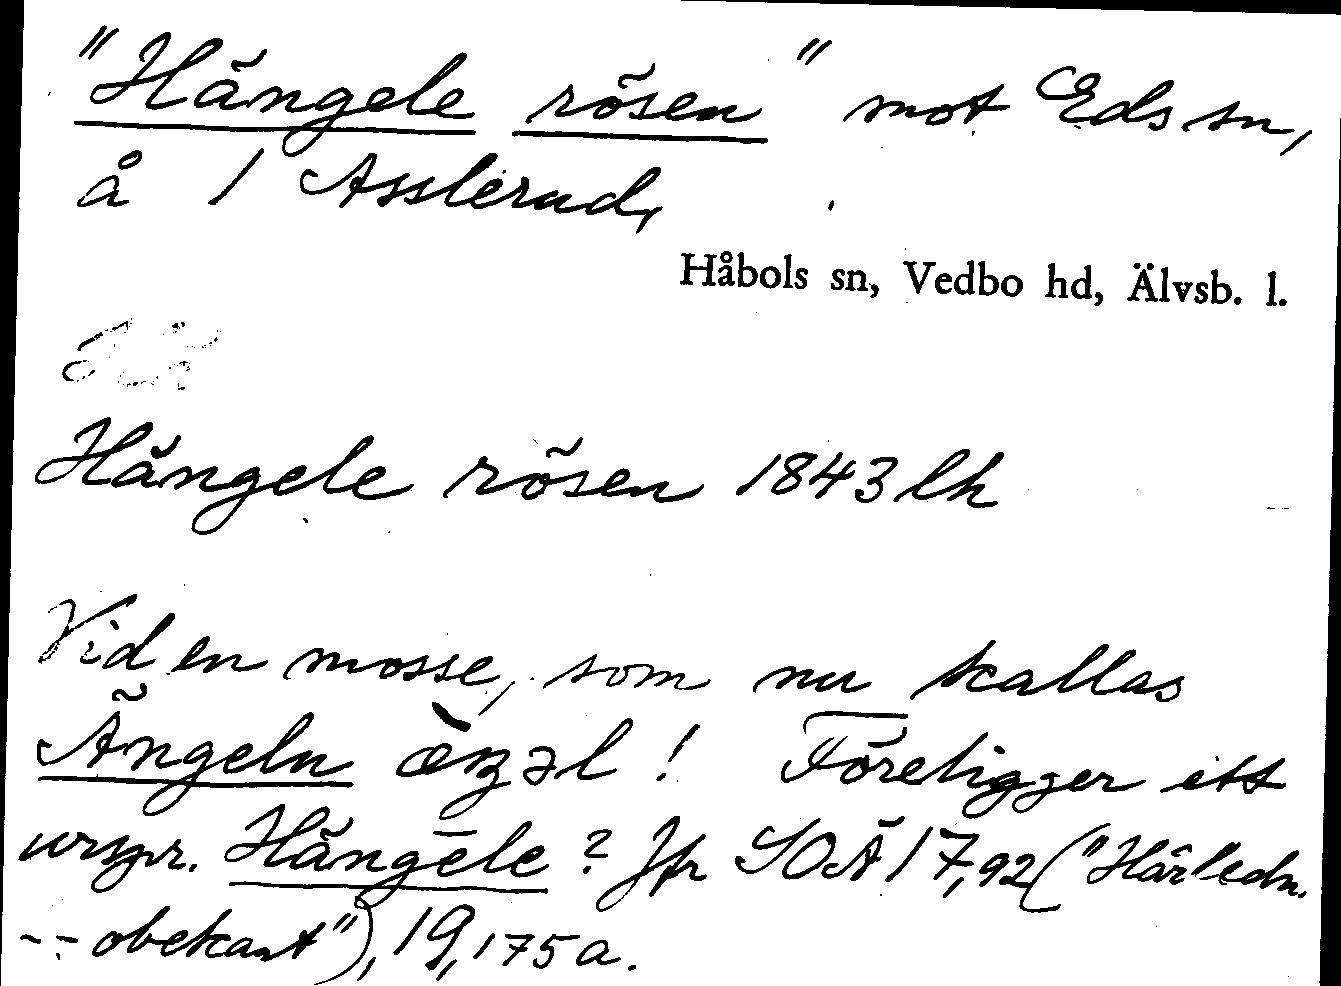 "Hängele rösen" mot Eds sn,
å 1 Asslerud,
Håbols sn, Vedbo hd, Älvsb. l.
Hängele rösen 1843 lh
Vid en mosse, som nu kallas
Ängeln æ̀ŋəl! Föreligger ett
urspr. Hängēle? Jfr SOÄ 17,92 ("Härledn.
-- obekant"), 19,175 a.